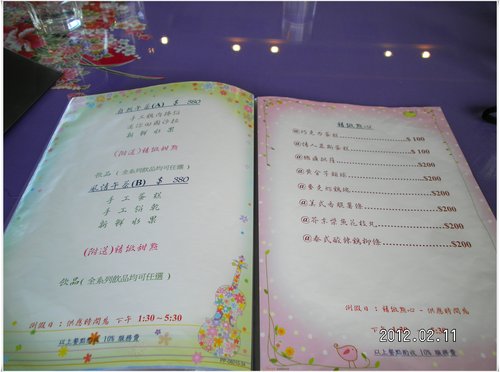 自然午茶(A) $ 380
新鮮水果
(附送)精緻甜點
飲品(全系列飲品均可任選)
風情午茶(B) $ 380
手工蛋糕
手工餅乾
新鮮水果
(附送)精緻甜點
飲品(全系列飲品均可任選)
例假日：供應時間為 下午 1:30~5:30
以上餐點酌收 10% 服務費
精緻點心
@巧克力蛋糕..................$100
@情人慕斯蛋糕..................$100
@黃金芋頭球..................$200
@麥克炸雞塊..................$200
@美式香腿薯條..................$200
@芥末柴魚花枝丸..................$200
@泰式酸辣雞柳條..................$200
例假日：精緻點心-供應時間
以上餐點酌收 10% 服務費
2012.02.11